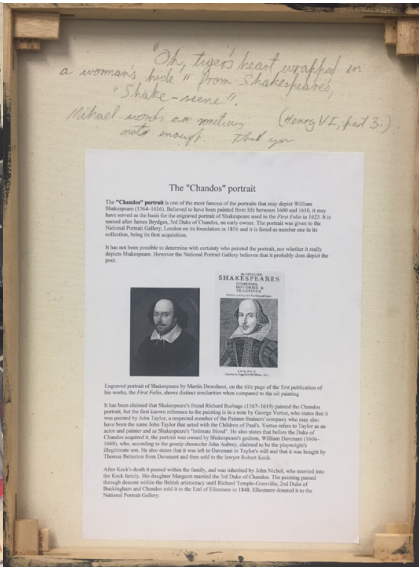 "Oh, tiger's heart wrapped in
a woman's hide" from Shakespeare's,
"Shake-scene".
(Henry VI, part 3.)
Mihael words are
not enough. Thank you
The "Chandos" portrait
The "Chandos" portrait is one of the most famous of the portraits that may depict William
Shakespeare (1564–1616). Believed to have been painted from life between 1600 and 1610, it may
have served as the basis for the engraved portrait of Shakespeare used in the First Folio in 1623. It is
named after James Brydges, 3rd Duke of Chandos, an early owner. The portrait was given to the
National Portrait Gallery, London on its foundation in 1856 and it is listed as number one in its
collection, being its first acquisition.
It has not been possible to determine with certainty who painted the portrait, nor whether it really
depicts Shakespeare. However the National Portrait Gallery believes that it probably does depict the
poet.
SHAKESPEARES
COMEDIES,
HISTORIES, &
TRAGEDIES.
Engraved portrait of Shakespeare by Martin Droeshout, on the title page of the first publication of
his works, the First Folio, shows distinct similarities when compared to the oil painting
It has been claimed that Shakespeare's friend Richard Burbage (1567–1619) painted the Chandos
portrait, but the first known reference to the painting is in a note by George Vertue, who states that it
was painted by John Taylor, a respected member of the Painter-Stainers' company who may also
have been the same John Taylor that acted with the Children of Paul's. Vertue refers to Taylor as an
actor and painter and as Shakespeare's "intimate friend". He also states that before the Duke of
Chandos acquired it, the portrait was owned by Shakespeare's godson, William Davenant (1606–
1668), who, according to the gossip chronicler John Aubrey, claimed to be the playwright's
illegitimate son. He also states that it was left to Davenant in Taylor's will and that it was bought by
Thomas Betterton from Davenant and then sold to the lawyer Robert Keck.
After Keck's death it passed within the family, and was inherited by John Nichol, who married into
the Keck family. His daughter Margaret married the 3rd Duke of Chandos. The painting passed
through descent within the British aristocracy until Richard Temple-Grenville, 2nd Duke of
Buckingham and Chandos sold it to the Earl of Ellesmere in 1848. Ellesmere donated it to the
National Portrait Gallery.